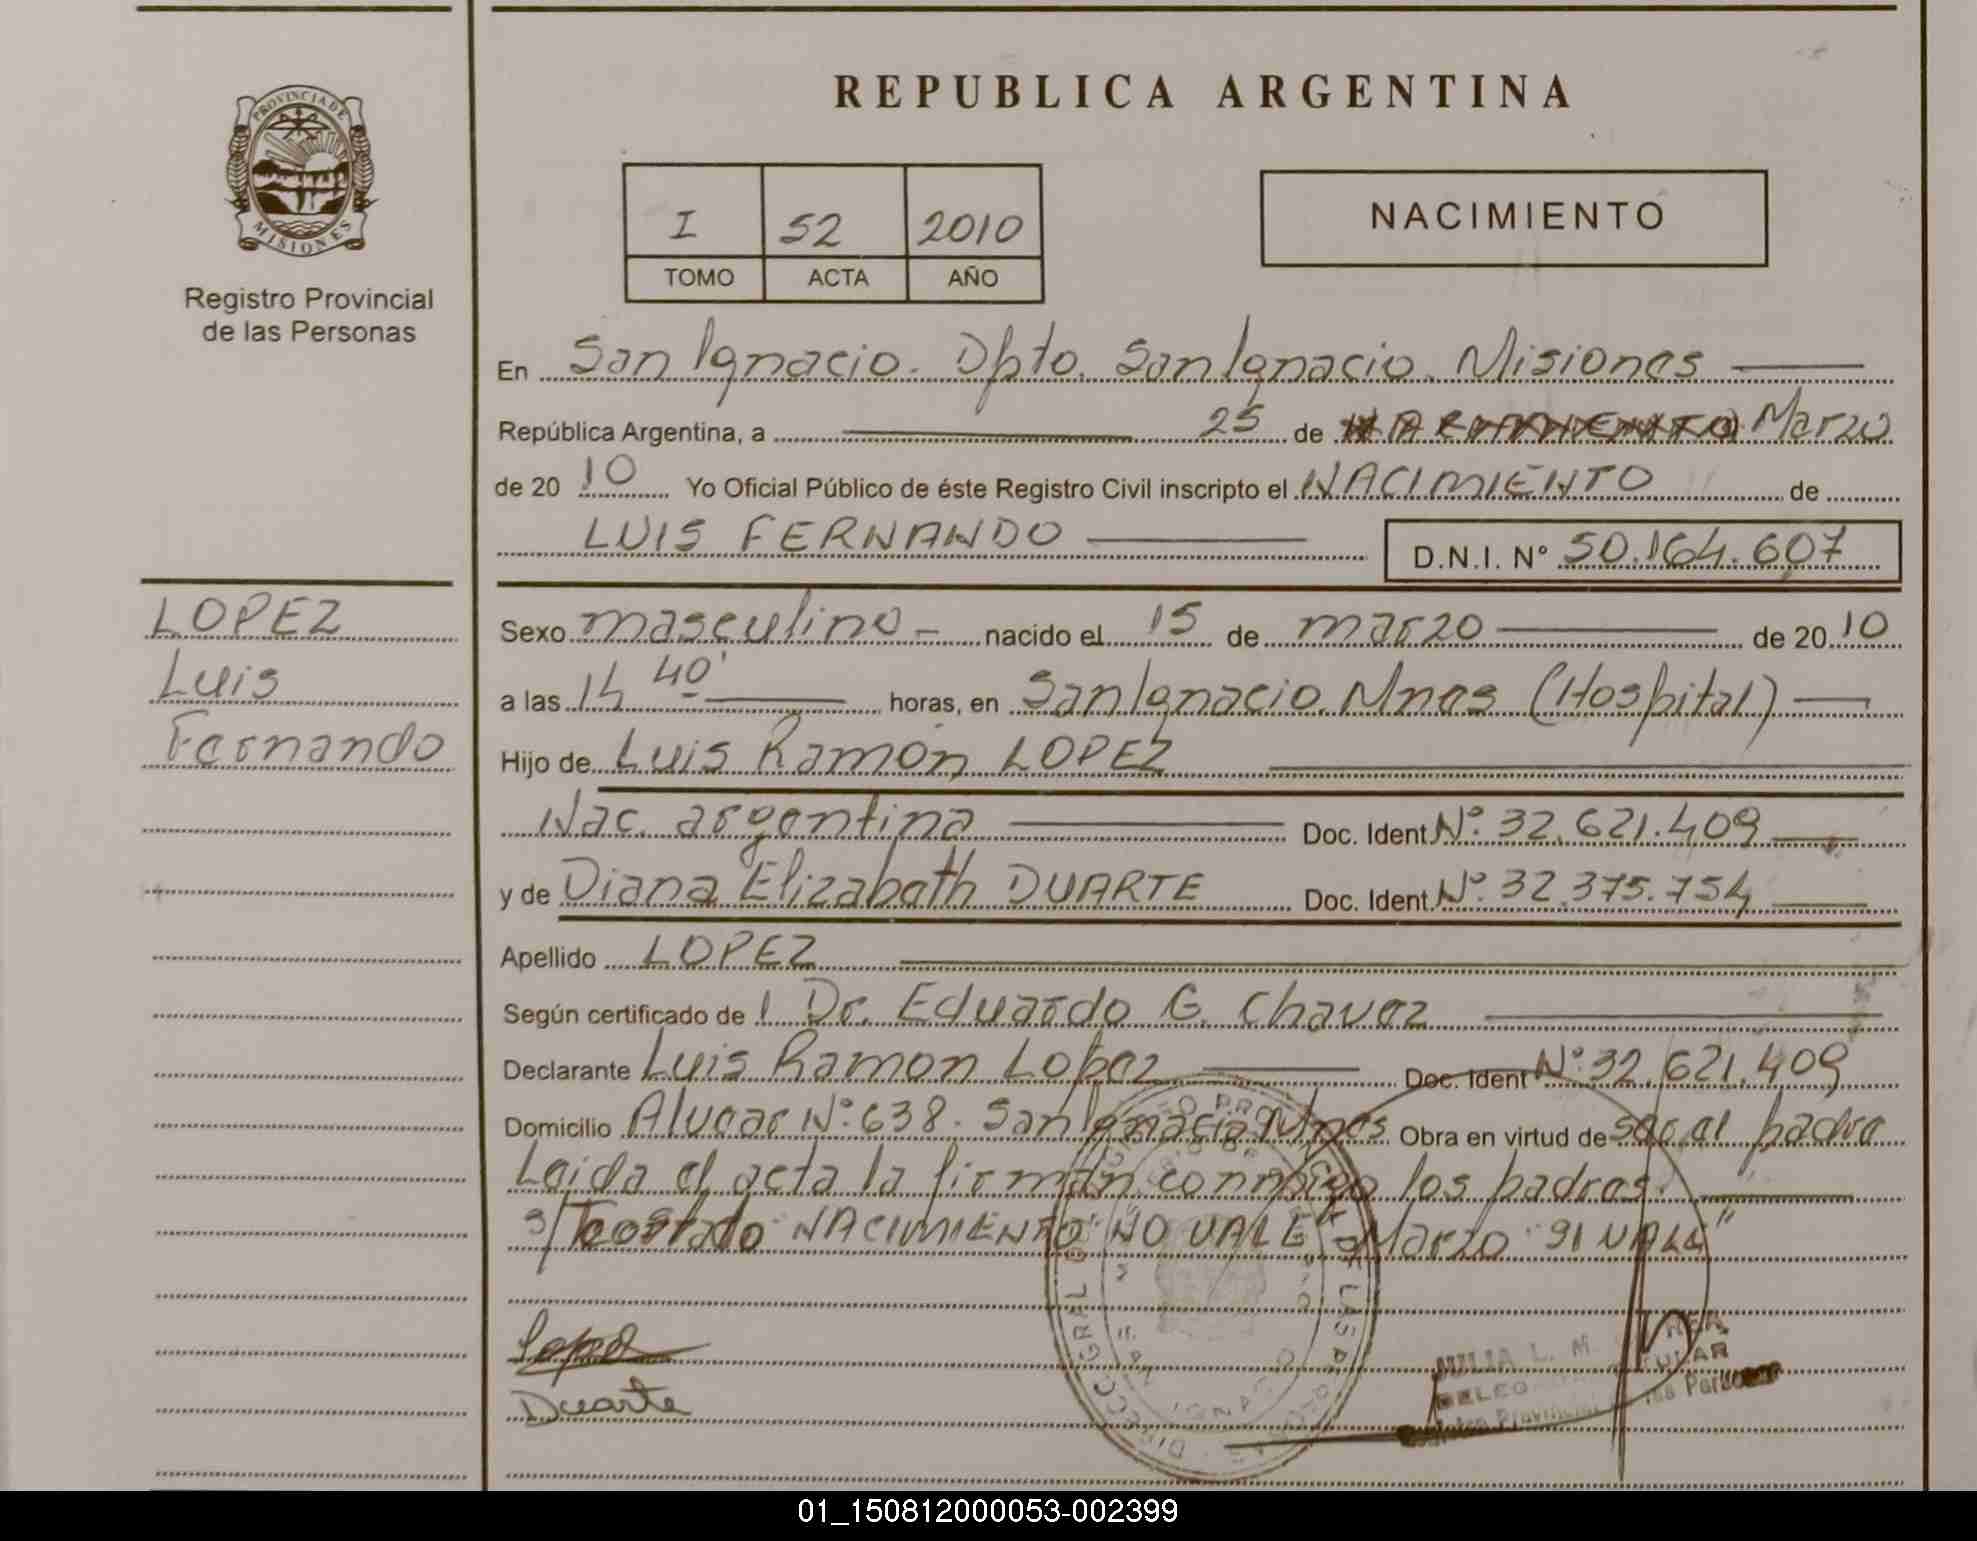 PROVINCIA DE
MISIONES
Registro Provincial
de las Personas
LOPEZ
Luis
Fernando
REPUBLICA ARGENTINA
I 52 2010
TOMO ACTA AÑO
NACIMIENTO
En San Ignacio. Dpto. San Ignacio. Misiones
República Argentina, a 25 de NACIMIENTO Marzo
de 20 10 Yo Oficial Público de éste Registro Civil inscripto el NACIMIENTO de
LUIS FERNANDO D.N.I. N° 50.164.607
Sexo masculino - nacido el 15 de marzo de 20 10
a las 14 40' horas, en San Ignacio. Mnes (Hospital)
Hijo de Luis Ramón LOPEZ
Nac. argentina Doc. Ident N°. 32.621.409
y de Diana Elizabeth DUARTE Doc. Ident. N°. 32.375.754
Apellido LOPEZ
Según certificado de l Dr. Eduardo G. Chavez
Declarante Luis Ramon Lopez Doc. Ident N°. 32.621.409
Domicilio Alvear N°: 638. San Ignacio Mnes Obra en virtud de ser el padre
Leida el acta la firman conmigo los padres.
s/Testado "NACIMIENTO" NO VALE "Marzo" SI VALE"
Lopez
Duarte
JULIA L. M.
01_150812000053-002399